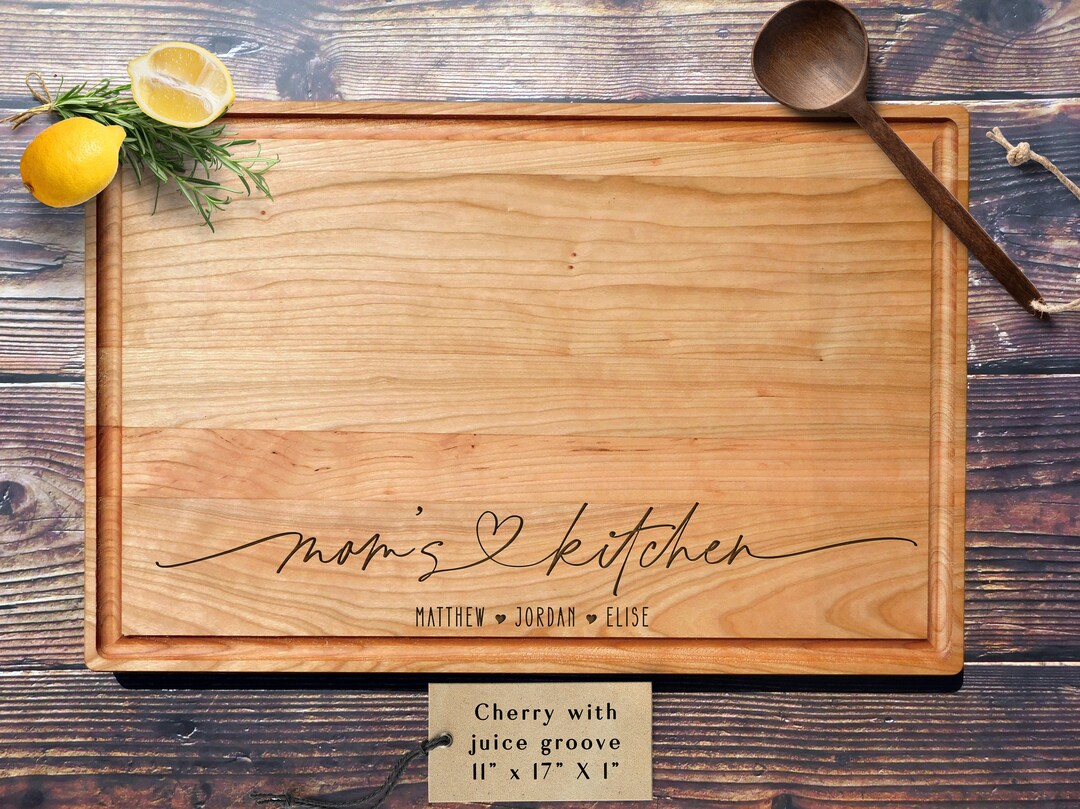 mom's kitchen
MATTHEW ♥ JORDAN ♥ ELISE
Cherry with
juice groove
11" x 17" X 1"